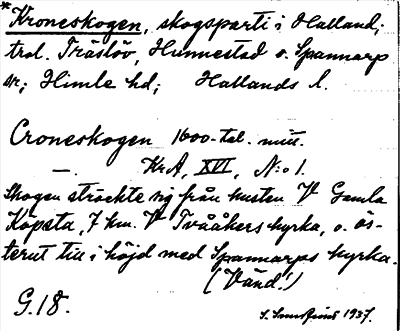 *Kroneskogen, skogsparti i Halland;
trol. Träslöv, Hunnestad o. Spannarp
snr; Himle hd; Hallands l.
Croneskogen 1600-tal. mitt.
—. KrA, XVI, N:o 1.
Skogen sträckte sig från kusten V Gamla
Köpsta, 7 km. V Tvååkers kyrka, o. ös-
terut till i höjd med Spannarps kyrka.
(Vänd!)
G.18.
S. 1937.